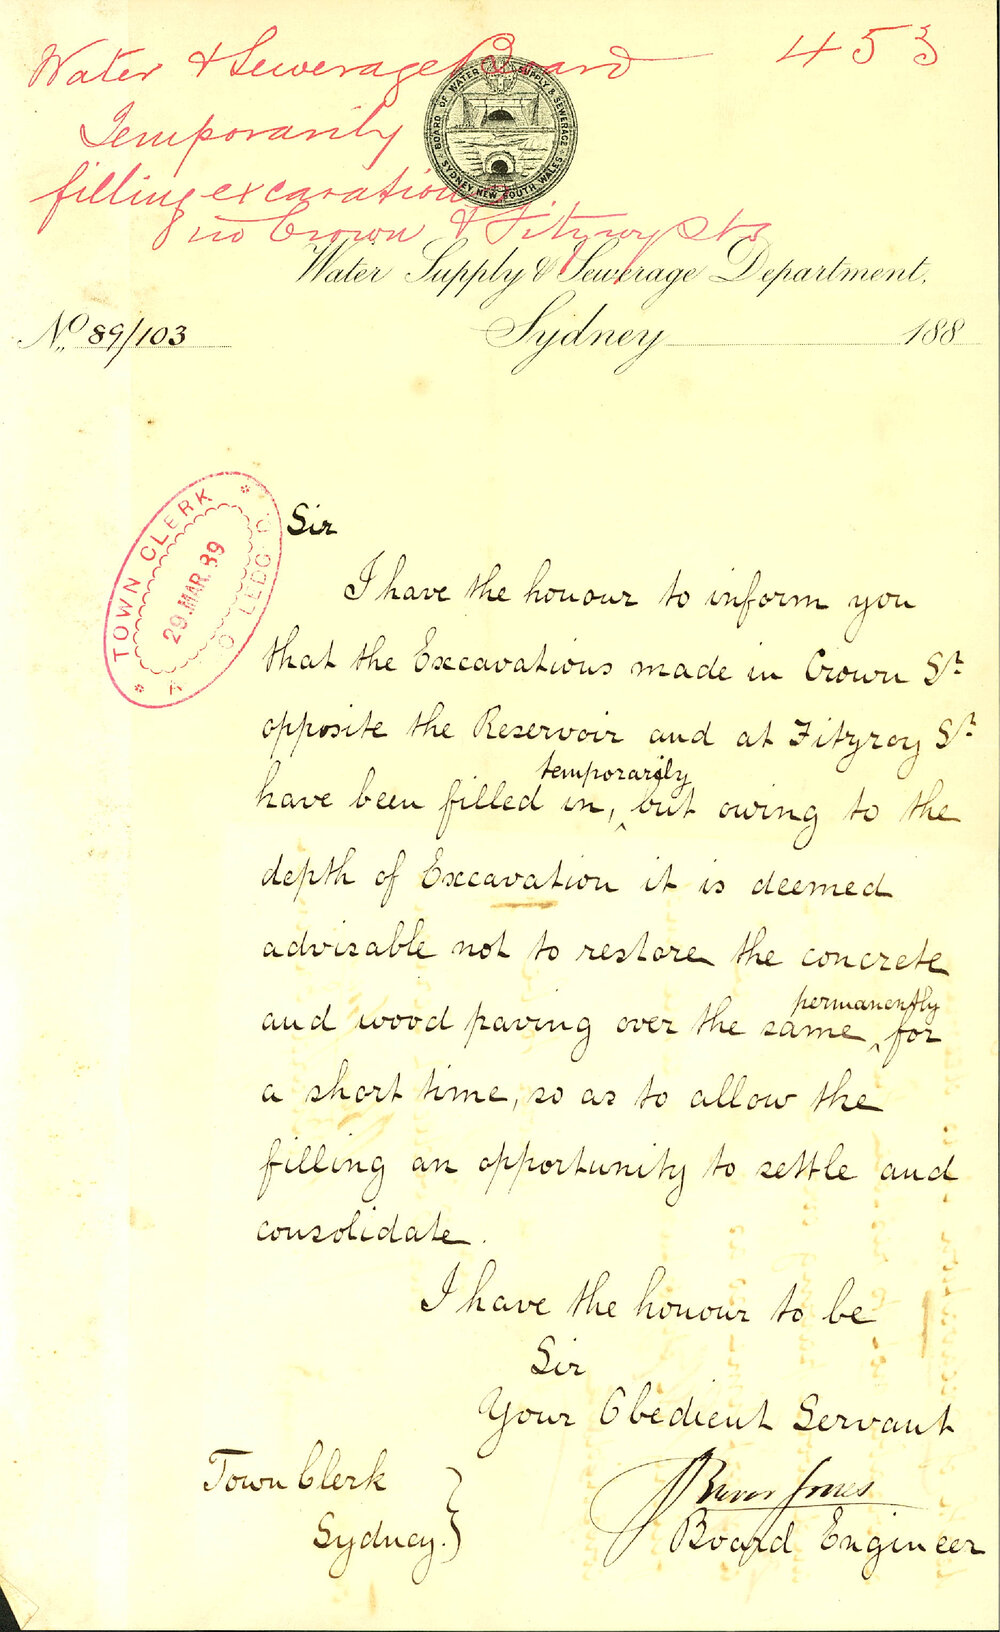 Water & Sewerage Board 453
Temporarily
filling excavations
in Crown & Fitzroy Sts
BOARD OF WATER SUPPLY & SEWERAGE
SYDNEY NEW SOUTH WALES
Water Supply & Sewerage Department,
No. 89/103 Sydney 188
TOWN CLERK
29. MAR. 89
Sir
I have the honour to inform you
that the Excavations made in Crown St
opposite the Reservoir and at Fitzroy St
temporarily
have been filled in, ‸ but owing to the
depth of Excavation it is deemed
advisable not to restore the concrete
permanently
and wood paving over the same ‸ for
a short time, so as to allow the
filling an opportunity to settle and
consolidate.
I have the honour to be
Sir
Your Obedient Servant
Town Clerk
Sydney.
Jones
Board Engineer